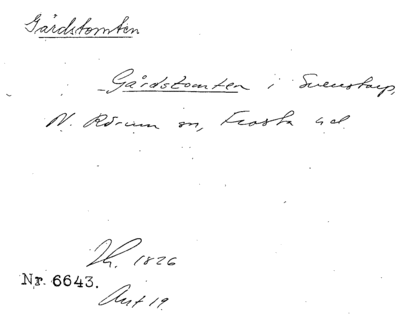 Gårdstomten
Gårdstomten i Svenstorp,
N. Rörum sn, Frosta hd.
1826
Nr. 6643.
Ant 19.